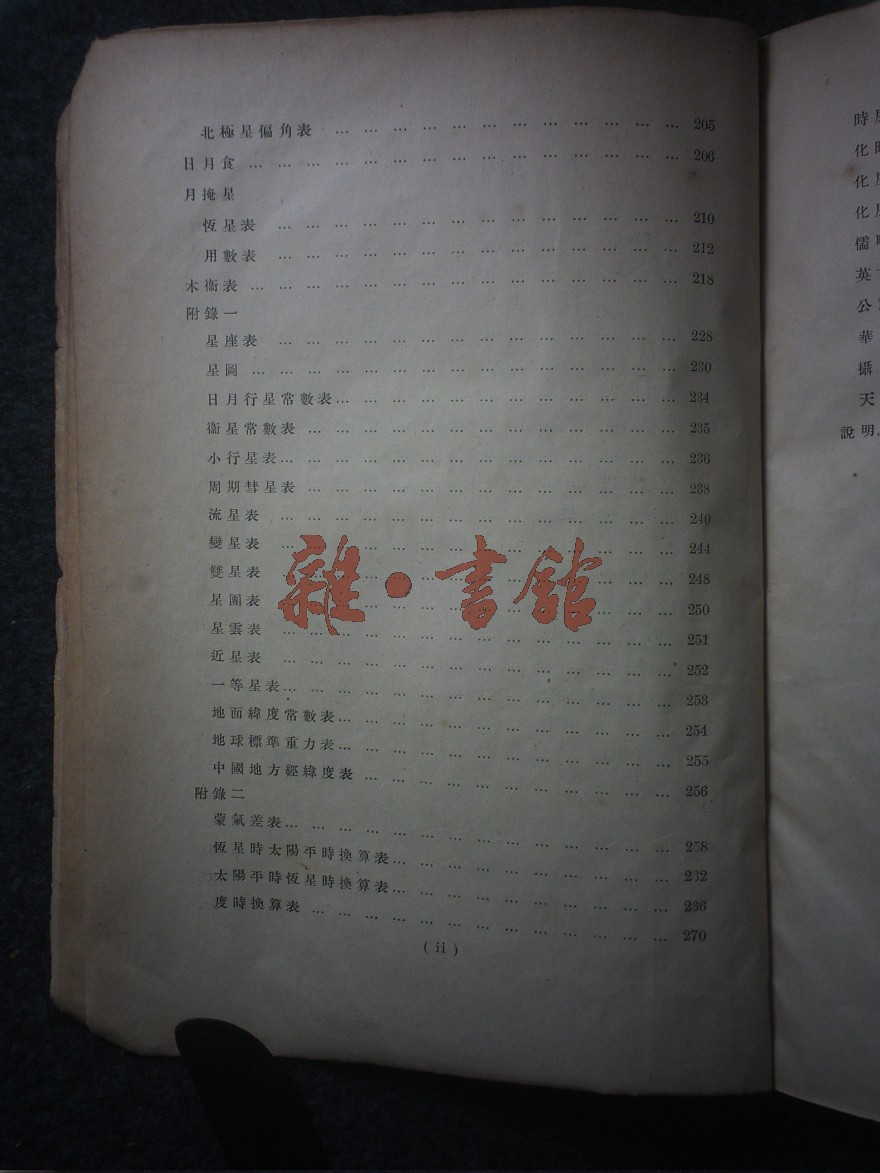 北極星偏角表 … … … … … … … … … … … … … 205
日月食 … … … … … … … … … … … … … … … … 206
月掩星
恆星表 … … … … … … … … … … … … … … … 210
用數表 … … … … … … … … … … … … … … … 212
木衞表 … … … … … … … … … … … … … … … … 218
附錄一
星座表 … … … … … … … … … … … … … … … 228
星圖 … … … … … … … … … … … … … … … … 230
日月行星常數表… … … … … … … … … … … … … 234
衞星常數表 … … … … … … … … … … … … … … 235
小行星表… … … … … … … … … … … … … … … 236
周期彗星表 … … … … … … … … … … … … … … 238
流星表 … … … … … … … … … … … … … … … 240
變星表 … … … … … … … … … … … … … … … 244
雙星表 … … … … … … … … … … … … … … 248
星團表 … … … … … … … … … … … … … … 250
星雲表 … … … … … … … … … … … … … … 251
近星表 … … … … … … … … … … … … … … 252
一等星表… … … … … … … … … … … … … … 253
地面緯度常數表… … … … … … … … … … … … 254
地球標準重力表… … … … … … … … … … … … 255
中國地方經緯度表 … … … … … … … … … … … 256
附錄二
蒙氣差表… … … … … … … … … … … … … …
恆星時太陽平時換算表… … … … … … … … … … 262
太陽平時恆星時換算表… … … … … … … … … … 266
度時換算表 … … … … … … … … … … … … … 270
( ii )
雜·書館
時
化
化
化
儒
英
公
華
攝
天
說明